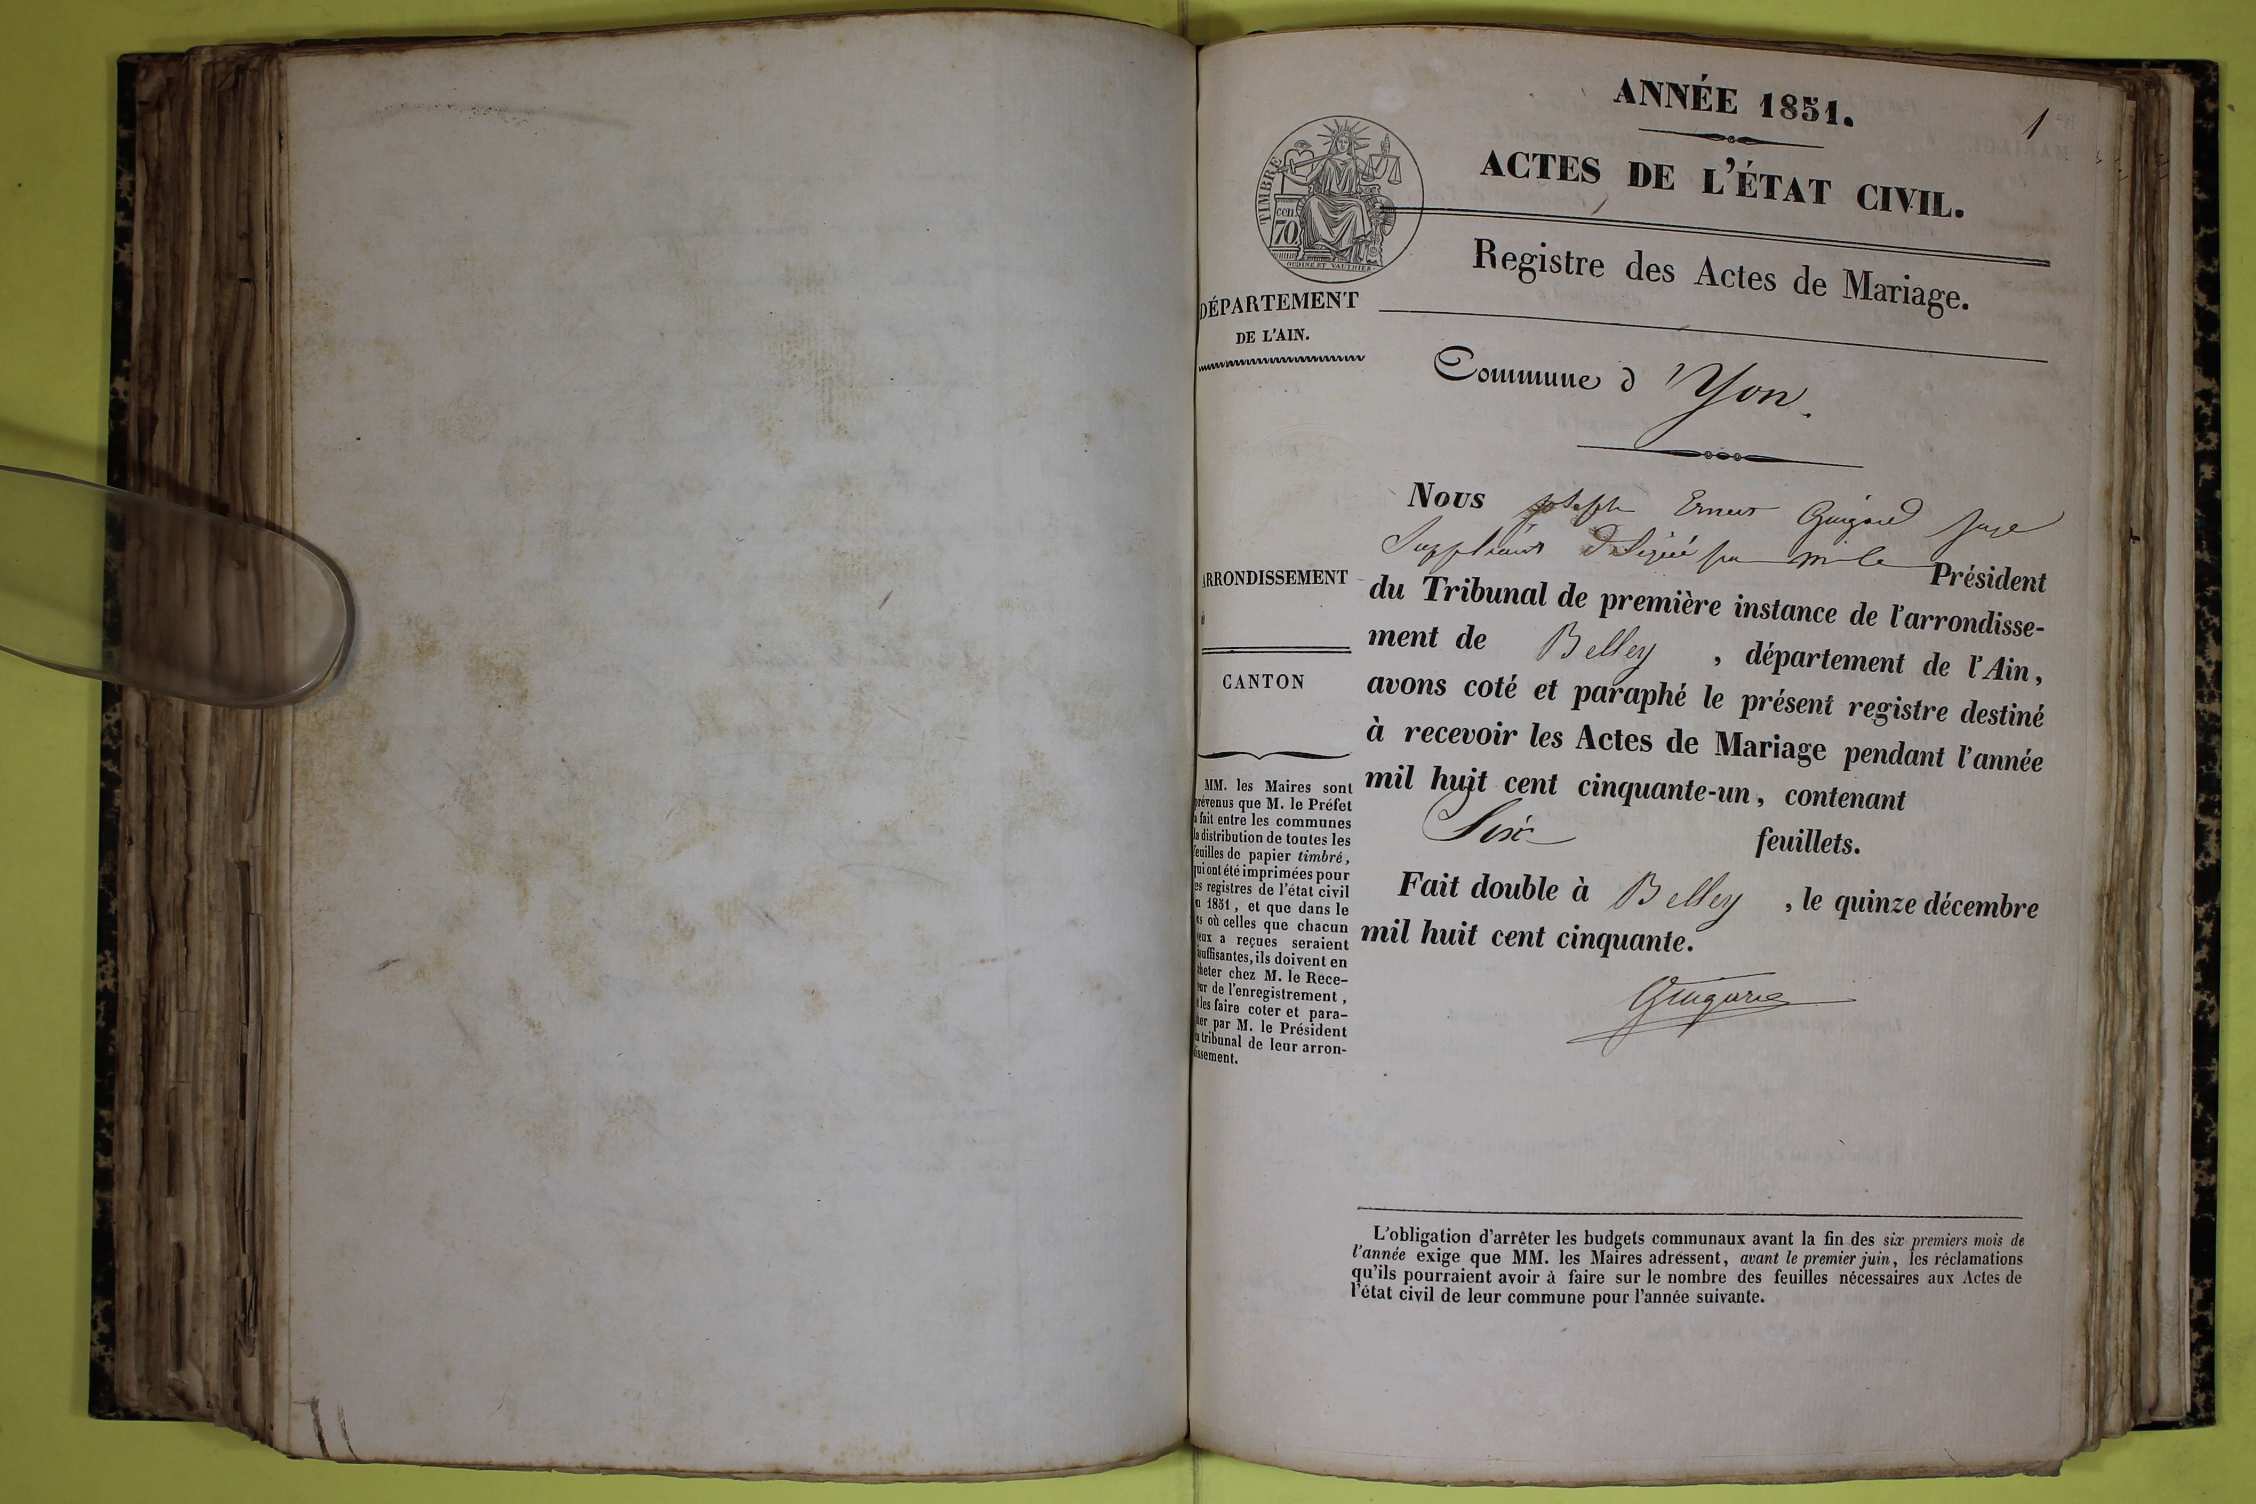 ANNÉE 1851.
1
ACTES DE L'ÉTAT CIVIL.
TIMBRE
cen
70
OUDINE ET VAUTHIER
Registre des Actes de Mariage.
DÉPARTEMENT
DE L'AIN.
Commune d'Yon.
Nous Joseph Ernest Juge
Suppléant par M. le Président
du Tribunal de première instance de l'arrondisse-
ment de Belley, département de l'Ain,
avons coté et paraphé le présent registre destiné
à recevoir les Actes de Mariage pendant l'année
mil huit cent cinquante-un, contenant
Six feuillets.
Fait double à Belley, le quinze décembre
mil huit cent cinquante.
ARRONDISSEMENT
CANTON
MM. les Maires sont
prévenus que M. le Préfet
a fait entre les communes
la distribution de toutes les
feuilles de papier timbré,
qui ont été imprimées pour
es registres de l'état civil
n 1851, et que dans le
as où celles que chacun
eux a reçues seraient
suffisantes, ils doivent en
cheter chez M. le Rece-
eur de l'enregistrement,
les faire coter et para-
her par M. le Président
u tribunal de leur arron-
dissement.
L'obligation d'arrêter les budgets communaux avant la fin des six premiers mois de
l'année exige que MM. les Maires adressent, avant le premier juin, les réclamations
qu'ils pourraient avoir à faire sur le nombre des feuilles nécessaires aux Actes de
l'état civil de leur commune pour l'année suivante.